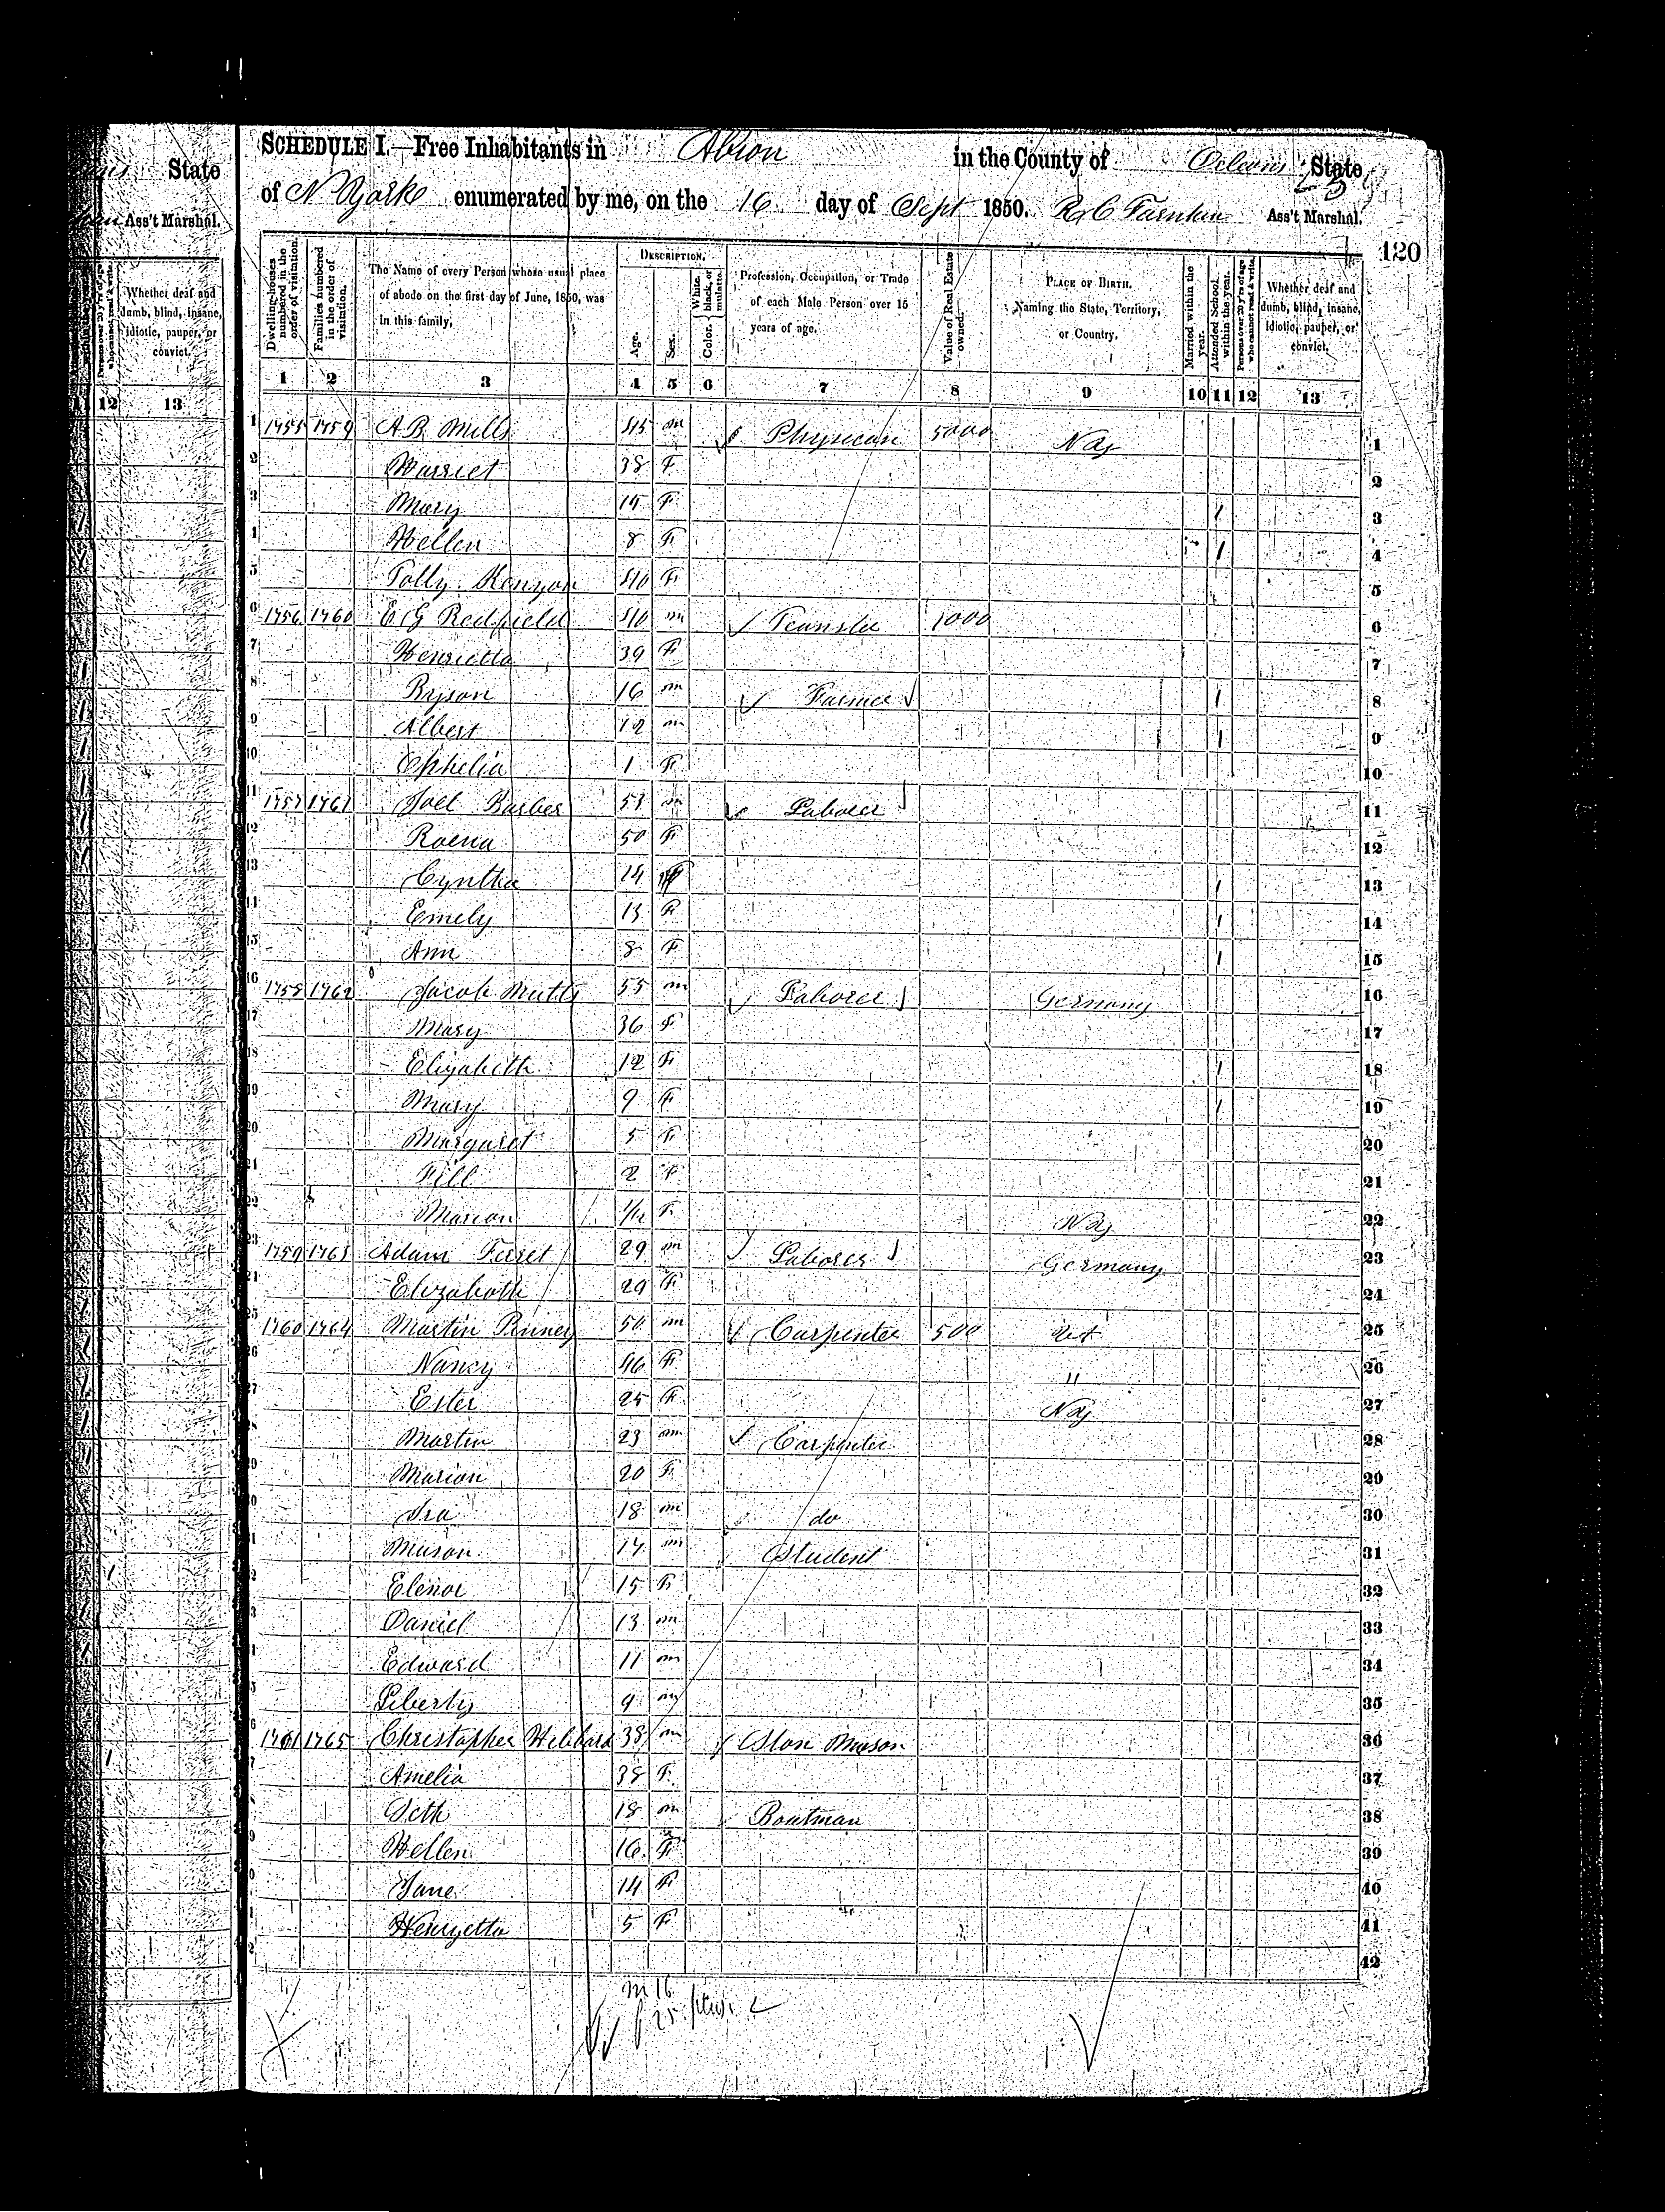 State
Ass't Marshal.
Whether deaf and dumb, blind, insane, idiotic, pauper, or convict.
12 13
SCHEDULE I.—Free Inhabitants in Albion in the County of Orleans State
of N York enumerated by me, on the 16 day of Sept 1850. Ass't Marshal.
120
Dwelling-houses numbered in the order of visitation.
Families numbered in the order of visitation.
The Name of every Person whose usual place of abode on the first day of June, 1850, was in this family.
DESCRIPTION.
Age.
Sex.
Color. White, black, or mulatto.
Profession, Occupation, or Trade of each Male Person over 15 years of age.
Value of Real Estate owned.
PLACE OF BIRTH. Naming the State, Territory, or Country.
Married within the year.
Attended School within the year.
Persons over 20 y'rs of age who cannot read & write.
Whether deaf and dumb, blind, insane, idiotic, pauper, or convict.
1 2 3 4 5 6 7 8 9 10 11 12 13
1 1755 1759 A B Mills 45 m Physican 5000 N Y 1
2 Harriet 38 F 2
3 Mary 14 F 1 3
4 Hellen 8 F 1 4
5 Polly Kenyon 40 F 5
6 1756 1760 E G Redfield 40 m 1000 6
7 Henrietta 39 F 7
8 Byson 16 m Farmer 1 8
9 Albert 12 m 1 9
10 Ophelia 1 F 10
11 1757 1761 Joel Barber 53 m Laborer 11
12 Roena 50 F 12
13 Cynthia 14 F 1 13
14 Emely 13 F 1 14
15 Ann 8 F 1 15
16 1758 1762 Jacob 55 m Laborer Germany 16
17 Mary 36 F 17
18 Elizabeth 12 F 1 18
19 Mary 9 F 1 19
20 Margaret 5 F 20
21 2 F 21
22 Marion 1/12 F N Y 22
23 1759 1763 Adam Ferret 29 m Laborer Germany 23
24 Elizabeth 29 F 24
25 1760 1764 Martin Pinney 50 m Carpenter 500 25
26 Nancy 46 F " 26
27 Ester 25 F N Y 27
28 Martin 23 m Carpenter 28
29 Marion 20 F 29
30 Ira 18 m do 30
31 Mason 17 m Student 31
32 Elenor 15 F 32
33 Daniel 13 m 33
34 Edward 11 m 34
35 Liberty 9 m 35
36 1761 1765 Christopher Hibbard 38 m Ston Mason 36
37 Amelia 38 F 37
38 Seth 18 m Boatman 38
39 Hellen 16 F 39
40 Jane 14 F 40
41 Henryetta 5 F 41
42
m 16
f 25